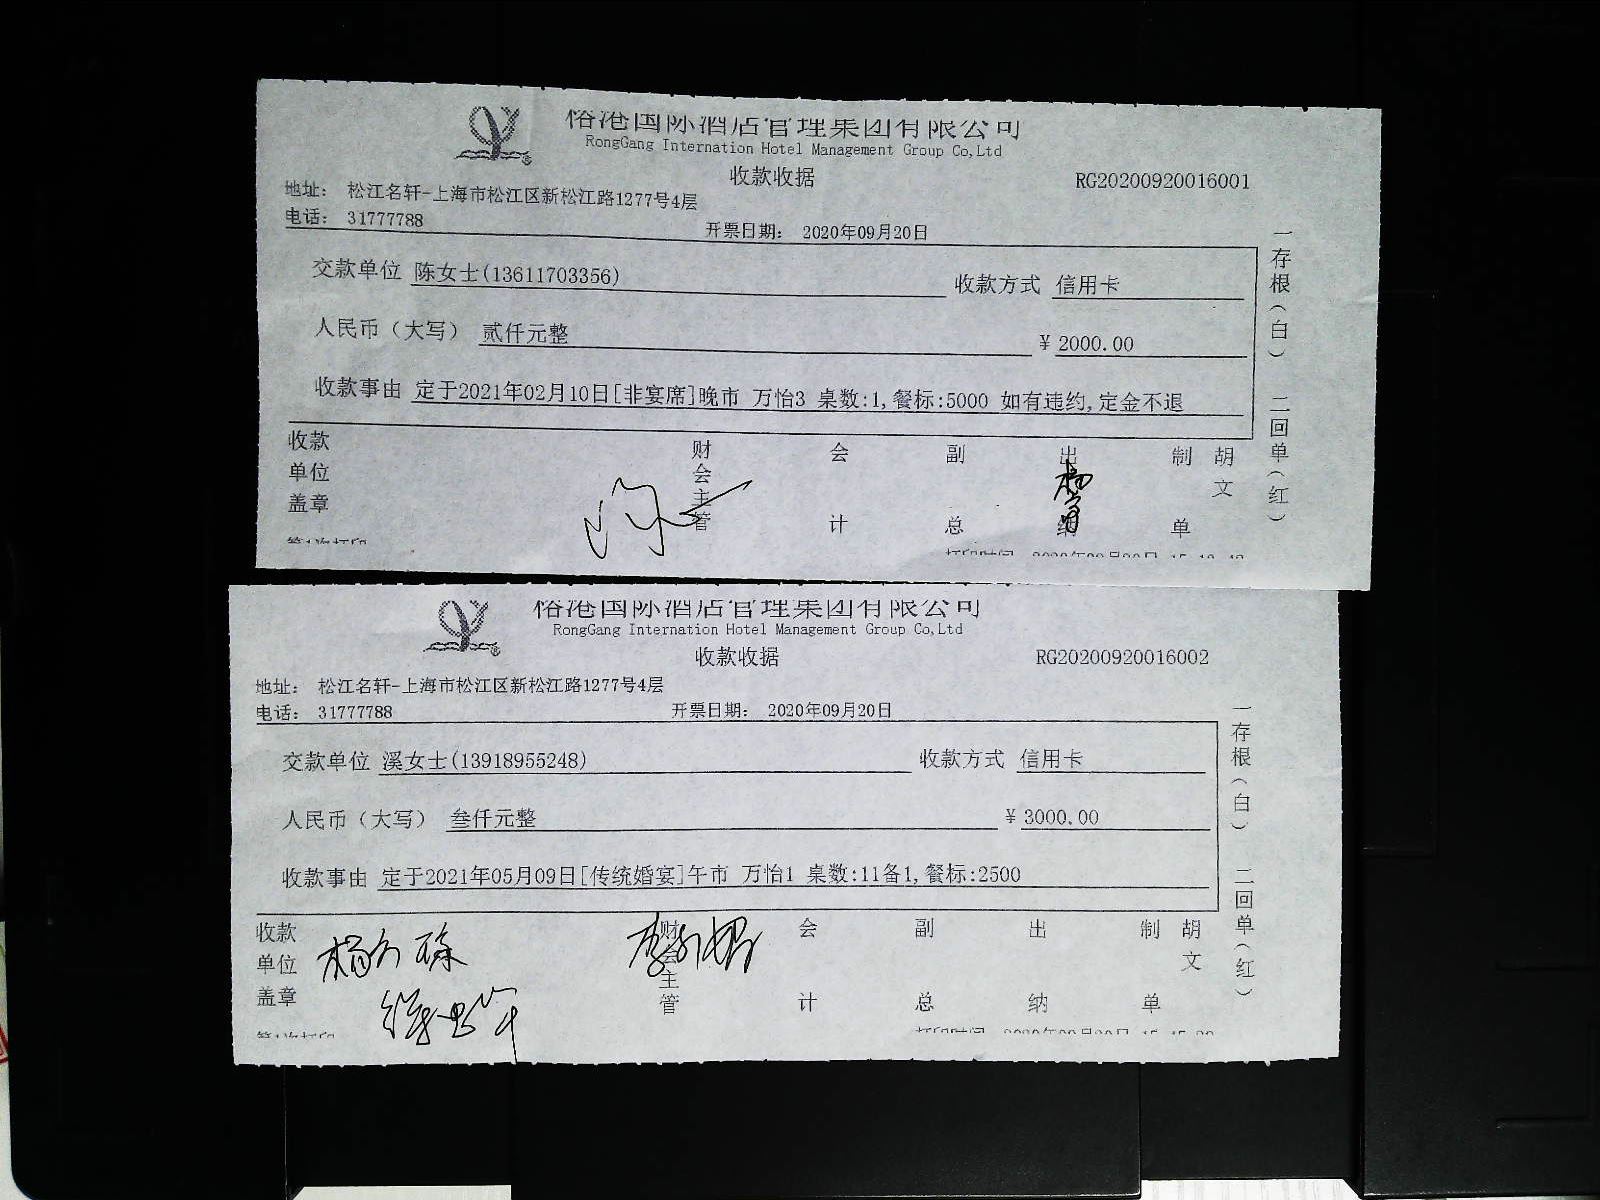 榕港国际酒店管理集团有限公司
RongGang International Hotel Management Group Co,Ltd
收款收据
RG20200920016001
地址： 松江名轩-上海市松江区新松江路1277号4层
电话： 31777788
开票日期： 2020年09月20日
交款单位 陈女士(13611703356) 收款方式 信用卡
人民币（大写） 贰仟元整 ¥ 2000.00
收款事由 定于2021年02月10日[非宴席]晚市 万怡3 桌数:1,餐标:5000 如有违约,定金不退
收款单位盖章 财会主管 会计 副总 出纳 制单 胡文
一存根（白） 二回单（红）
第1次打印
榕港国际酒店管理集团有限公司
RongGang International Hotel Management Group Co,Ltd
收款收据
RG20200920016002
地址： 松江名轩-上海市松江区新松江路1277号4层
电话： 31777788
开票日期： 2020年09月20日
交款单位 溪女士(13918955248) 收款方式 信用卡
人民币（大写） 叁仟元整 ¥ 3000.00
收款事由 定于2021年05月09日[传统婚宴]午市 万怡1 桌数:11备1,餐标:2500
收款单位盖章 财会主管 会计 副总 出纳 制单 胡文
一存根（白） 二回单（红）
第1次打印